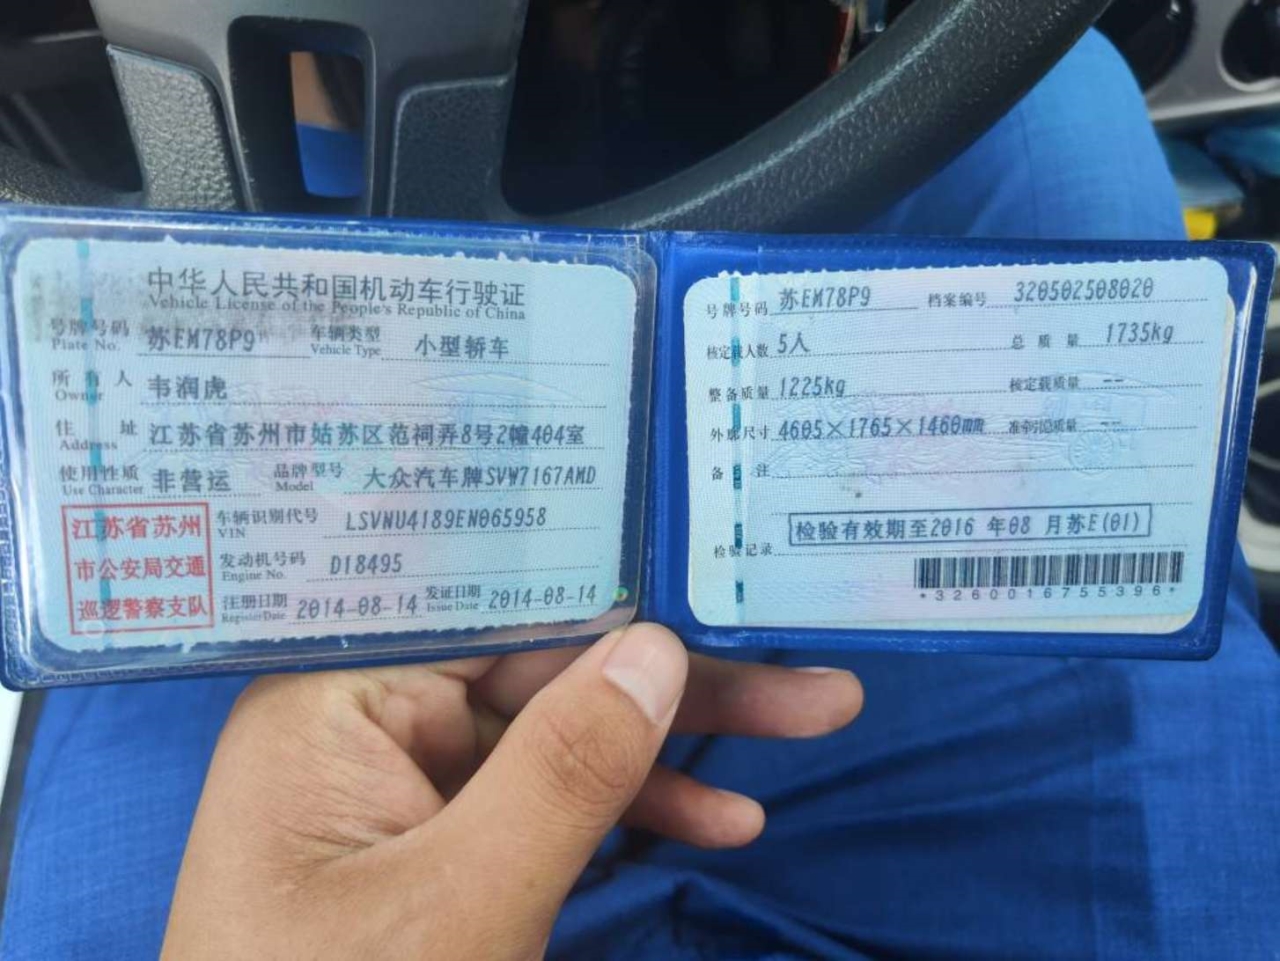 中华人民共和国机动车行驶证
Vehicle License of the People's Republic of China
号牌号码 苏EM78P9 车辆类型 小型轿车
Plate No. Vehicle Type
所有人 韦润虎
Owner
住址 江苏省苏州市姑苏区范祠弄8号2幢404室
Address
使用性质 非营运 品牌型号 大众汽车牌SVW7167AMD
Use Character Model
江苏省苏州
市公安局交通
巡逻警察支队
车辆识别代号 LSVNU4189EN065958
VIN
发动机号码 D18495
Engine No.
注册日期 2014-08-14 发证日期 2014-08-14
Register Date Issue Date
号牌号码 苏EM78P9 档案编号 320502508020
核定载人数 5人 总质量 1735kg
整备质量 1225kg 核定载质量 --
外廓尺寸 4605×1765×1460mm 准牵引总质量 --
备注
检验有效期至2016 年08 月苏E(01)
检验记录
*3260016755396*